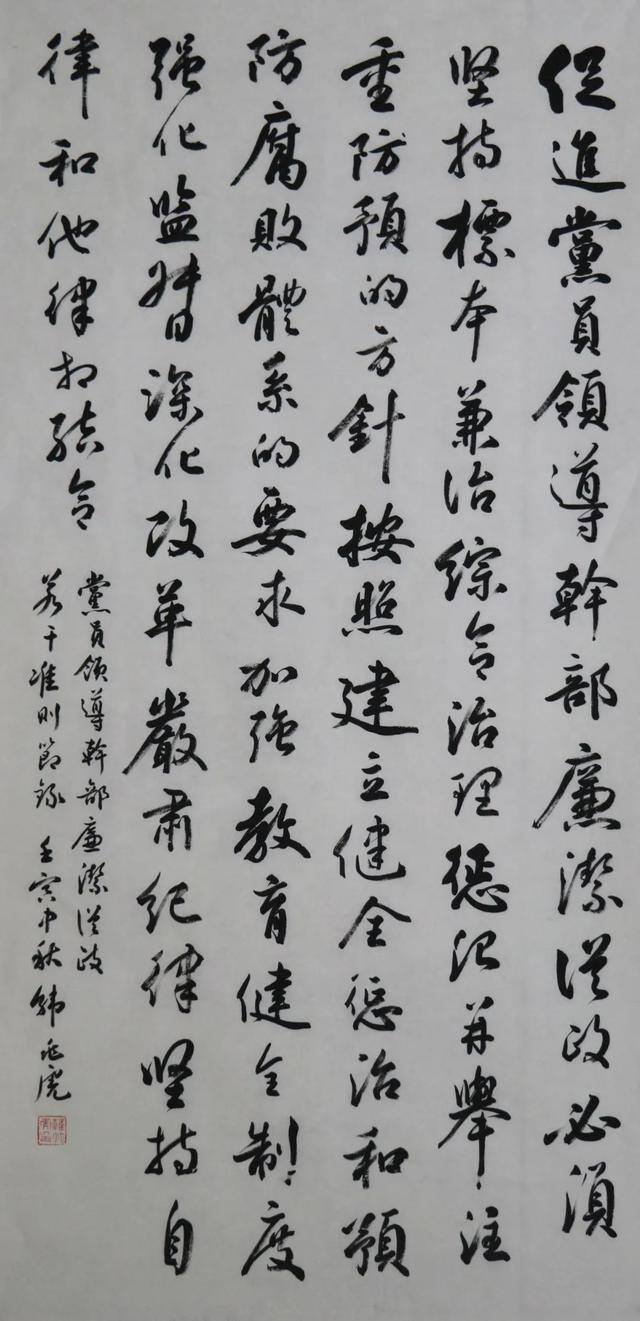 促進黨員領導幹部廉潔從政必須
坚持標本兼治綜合治理惩治并舉注
重防預的方針按照建立健全惩治和預
防腐敗體系的要求加強教育健全制度
强化监督深化改革嚴肅紀律坚持自
律和他律相結合
黨員領導幹部廉潔從政
若干准则節錄 壬寅中秋 韩兆虎